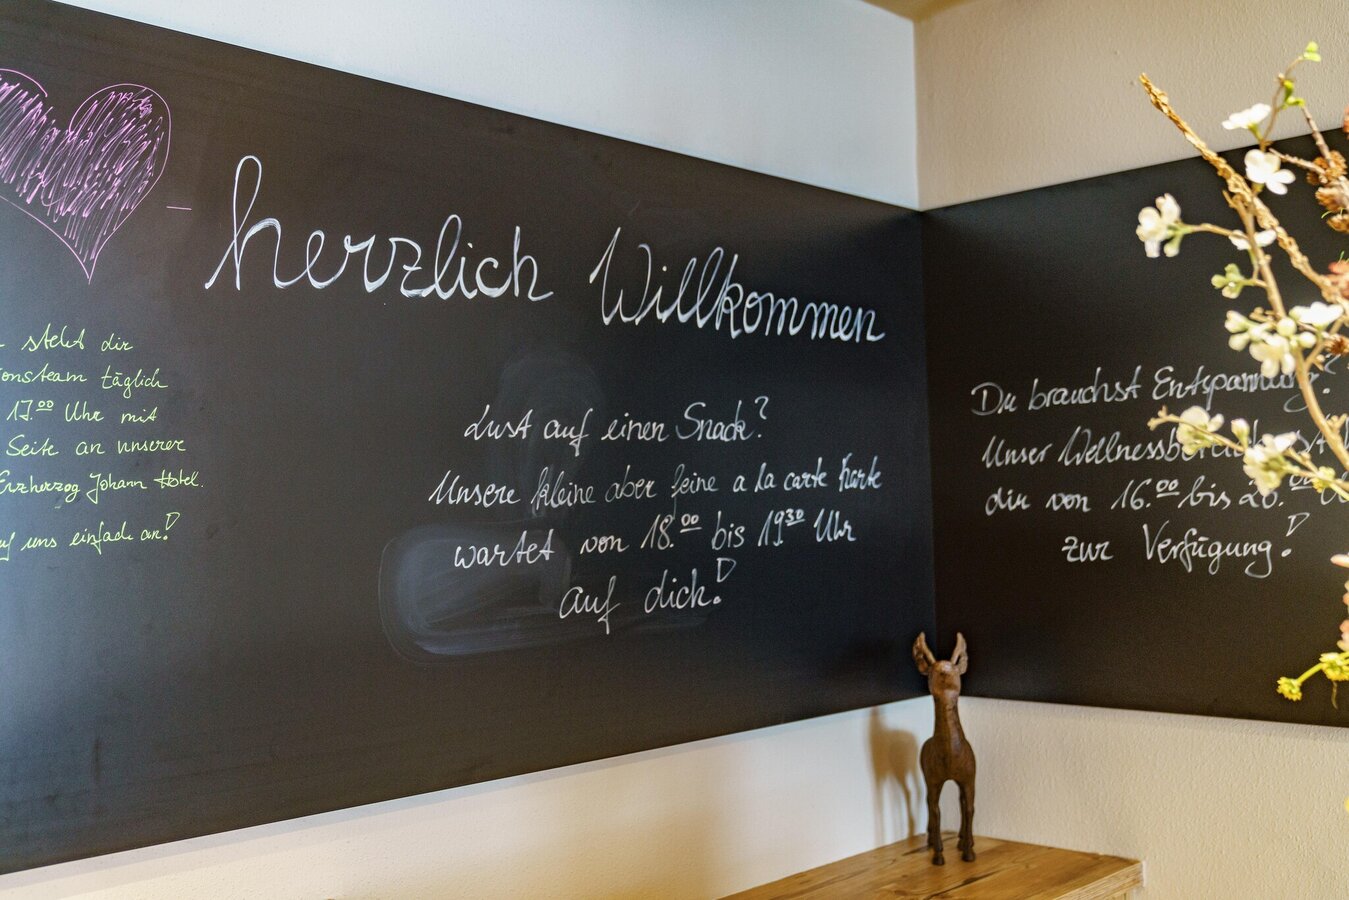 herzlich Willkommen
steht dir
onsteam täglich
17.00 Uhr mit
Seite an unserer
Erzherzog Johann Hotel.
uns einfach an!
Lust auf einen Snack?
Unsere kleine aber feine a la carte Karte
wartet von 18.00 bis 19 30 Uhr
auf dich!
Du brauchst Entspannung?
Unser Wellnessbereich
dir von 16.00 bis 20.
zur Verfügung!